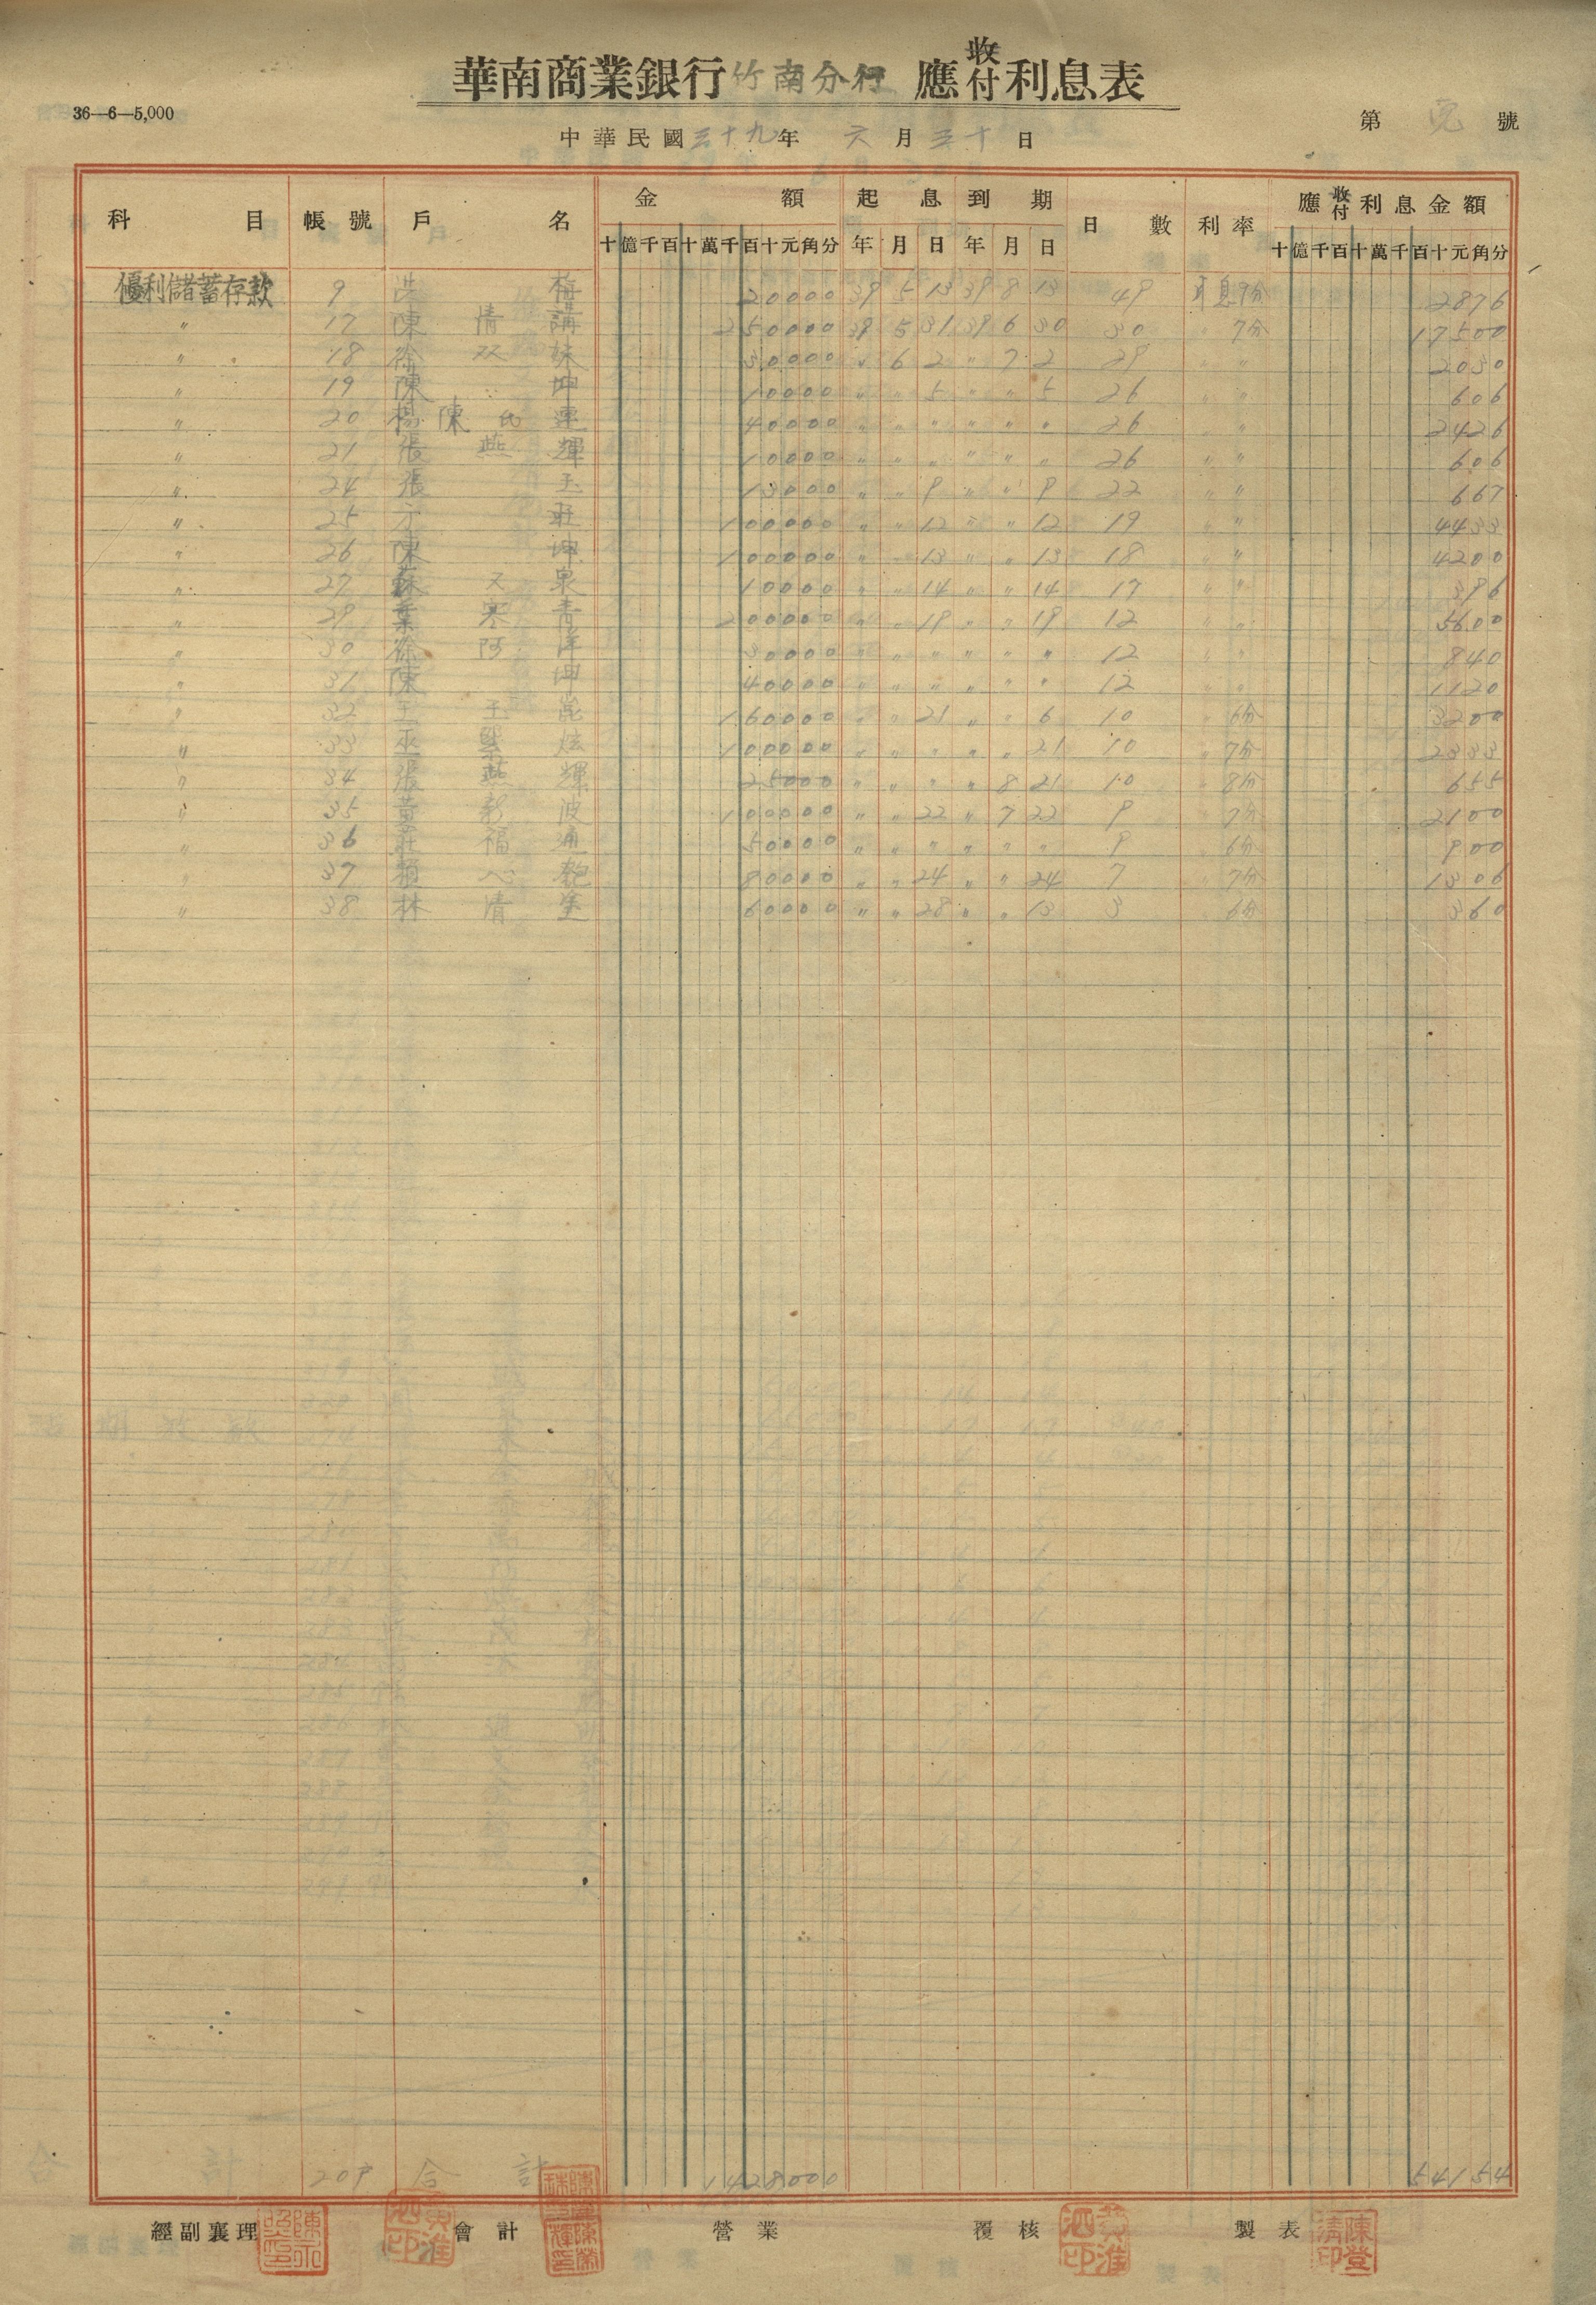 華南商業銀行竹南分行 應收付利息表
36—6—5,000
中華民國三十九年 六月三十日
第 號
科目 帳號 戶名 金額 起息到期 日數 利率 應收付利息金額
十億千百十萬千百十元角分 年月日年月日 十億千百十萬千百十元角分
優利儲蓄存款 9 洪 梅 20000 39 5 13 39 8 13 49 月息9分 2876
〃 17 陳 情 講 250000 39 5 31 39 6 30 30 〃 7分 17500
〃 18 徐 双 妹 30000 〃 6 2 〃 7 2 29 〃 〃 2030
〃 19 陳 坤 10000 〃 〃 5 〃 〃 5 26 〃 〃 606
〃 20 楊 陳 氏 運 40000 〃 〃 〃 〃 〃 〃 26 〃 〃 2426
〃 21 張 燕 輝 10000 〃 〃 〃 〃 〃 〃 26 〃 〃 606
〃 24 張 玉 13000 〃 〃 9 〃 〃 9 22 〃 〃 667
〃 25 方 旺 100000 〃 〃 12 〃 〃 12 19 〃 〃 4433
〃 26 陳 坤 100000 〃 〃 13 〃 〃 13 18 〃 〃 4200
〃 27 蘇 又 泉 10000 〃 〃 14 〃 〃 14 17 〃 〃 396
〃 29 葉 寒 青 200000 〃 〃 19 〃 〃 19 12 〃 〃 5600
〃 30 徐 阿 洋 30000 〃 〃 〃 〃 〃 〃 12 〃 〃 840
〃 31 陳 坤 40000 〃 〃 〃 〃 〃 〃 12 〃 〃 1120
〃 32 王 玉 崑 160000 〃 〃 21 〃 〃 6 10 〃 6分 3200
〃 33 巫 炫 100000 〃 〃 〃 〃 〃 21 10 〃 7分 2333
〃 34 張 燕 輝 25000 〃 〃 〃 〃 8 21 10 〃 8分 655
〃 35 黃 彩 波 100000 〃 〃 22 〃 7 22 9 〃 7分 2100
〃 36 莊 福 通 50000 〃 〃 〃 〃 〃 〃 9 〃 6分 900
〃 37 心 80000 〃 〃 24 〃 〃 24 7 〃 7分 1306
〃 38 林 清 60000 〃 〃 28 〃 〃 13 3 〃 6分 360
20戶 合 計 1428000 54154
經副襄理 會計 營業 覆核 製表
陳登清印